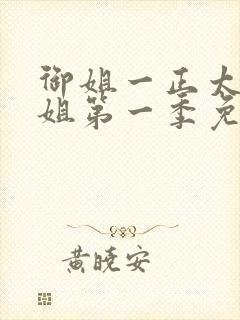 御姐一正太
姐第一季免
黄晓安